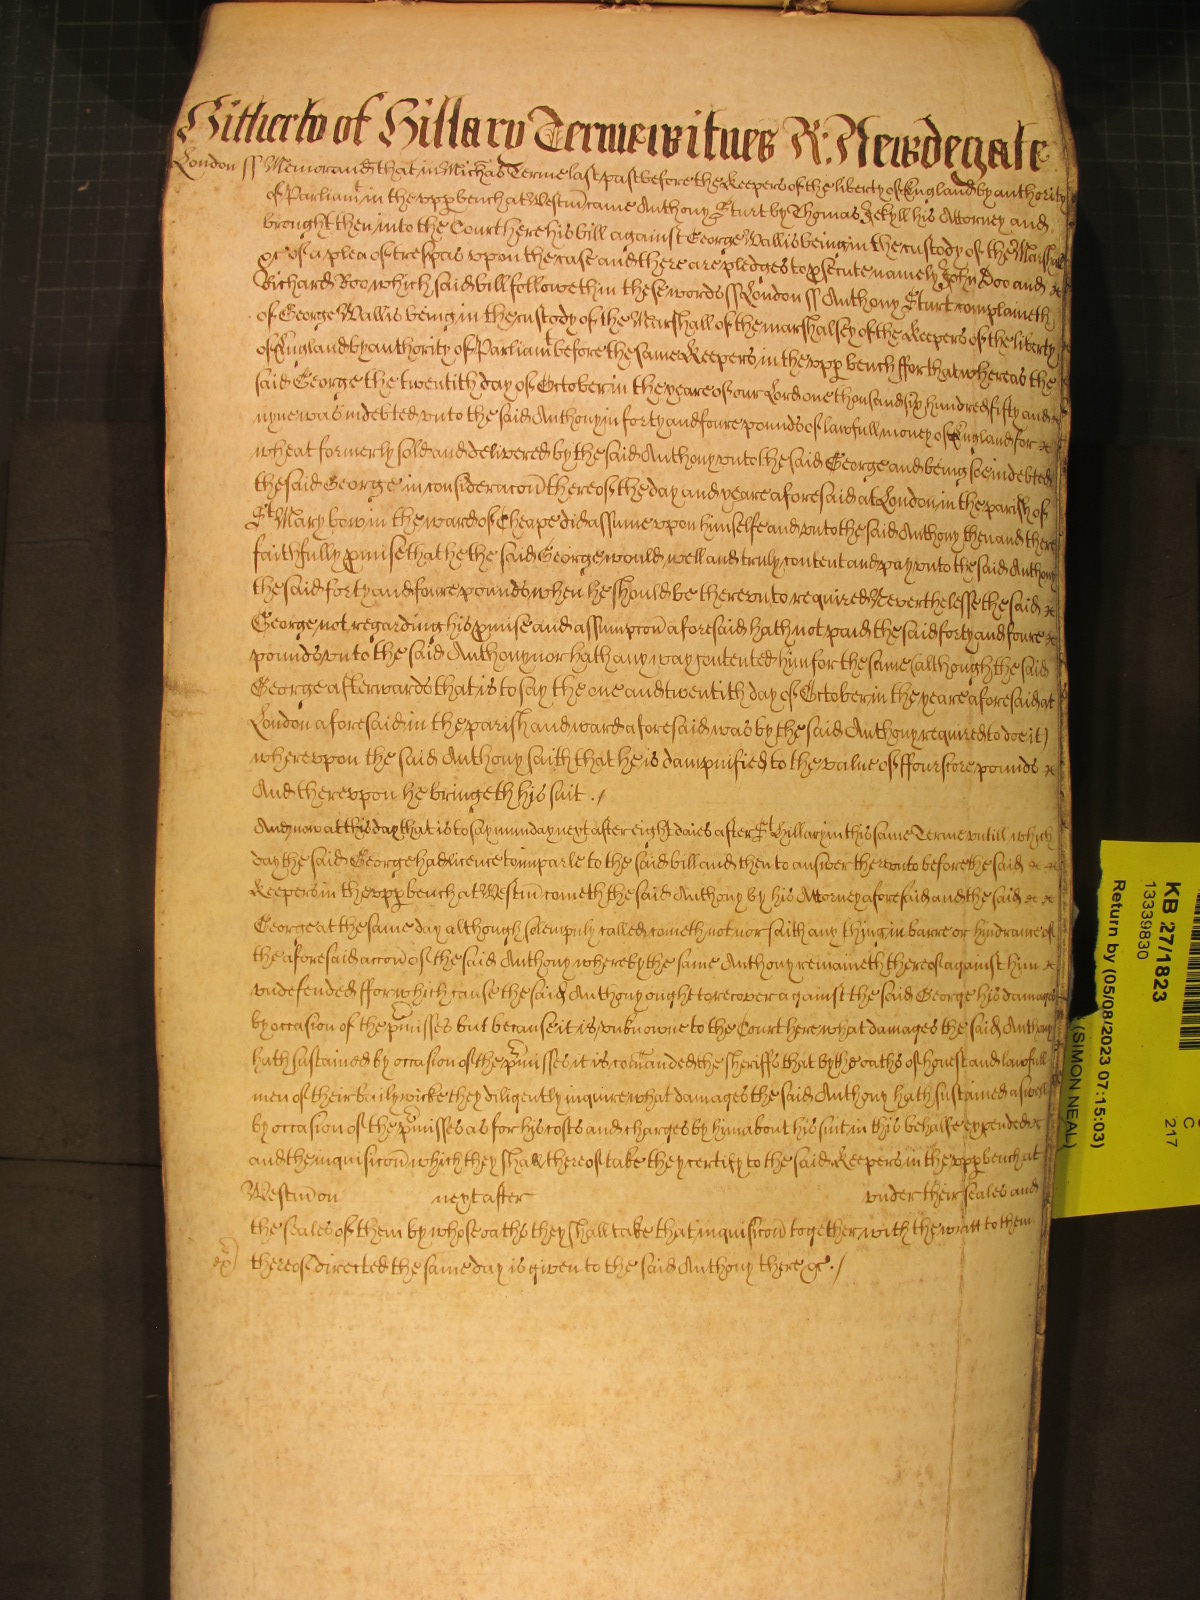 Hitherto of Hillary Terme witnes R: Newdegate
London ss Memorand that in Michas Terme last past before the Keepers of the liberty of England by authority
of Parliamt in the upp bench at Westm came Anthony Sturt by Thomas Jekyll his Attorney and
brought then into the Court here his bill against George Wallis being in the custody of the Marshal
&c of a plea of trespas upon the case and there are pledges to psecute namely John Doo and
Richard Roo which said bill followeth in these words ss London ss Anthony Sturt complaineth
of George Wallis being in the custody of the Marshall of the marshalsey of the Keepers of the liberty
of England by authority of Parliamt before the same Keepers in the upp bench ffor that whereas the
said George the twentith day of October in the yeare of our Lord one thousand six hundred fifty and
nyne was indebted unto the said Anthony in forty and foure pounds of lawfull money of England for
wheat formerly sold and delivered by the said Anthony unto the said George and being soe indebted
the said George in consideracon thereof the day and yeare aforesaid at London in the parish of
St Mary bow in the ward of Cheape did assume upon himselfe and unto the said Anthony then and there
faithfully pmise that he the said George would well and truly content and pay unto the said Anthony
the said forty and foure pounds when he should be thereunto required Neverthelesse the said
George not regarding his pmise and assumpcon aforesaid hath not paid the said forty and foure
pounds unto the said Anthony nor hath any way contented him for the same (although the said
George afterwards that is to say the one and twentith day of October in the yeare aforesaid at
London aforesaid in the parish and ward aforesaid was by the said Anthony required to doe it)
whereupon the said Anthony saith that he is dampnified to the value of ffourscore pounds
And thereupon he bringeth his suit ./
And now at this day that is to say munday next after eight daies after St Hillary in this same Terme untill which
day the said George had licence to imparle to the said bill and then to answer thereunto before the said
Keepers in the upp bench at Westm cometh the said Anthony by his Attorney aforesaid and the said
George at the same day although solempnly called cometh not nor saith any thing in barre or hindrance of
the aforesaid accon of the said Anthony whereby the same Anthony remaineth thereof against him
undefended ffor which cause the said Anthony ought to recover against the said George his damages
by occasion of the pmisses but because it is unknowne to the Court here what damages the said Anthony
hath sustained by occasion of the pmisses it is comanded the sheriffs that by the oaths of honest and lawfull
men of their bailywicke they diligently inquire what damages the said Anthony hath sustained aswell
by occasion of the pmisses as for his costs and charges by him about his suit in this behalfe expended &c
and the inquisicon which they shall thereof take they certify to the said Keepers in the upp bench at
Westm on next after under their seales and
the seales of them by whose oaths they shall take that inquisicon together with the writt to them
thereof directed the same day is given to the said Anthony there &c ./
KB 27/1823
13339830
C
217
Return by (05/08/2023 07:15:03)
(SIMON NEAL)